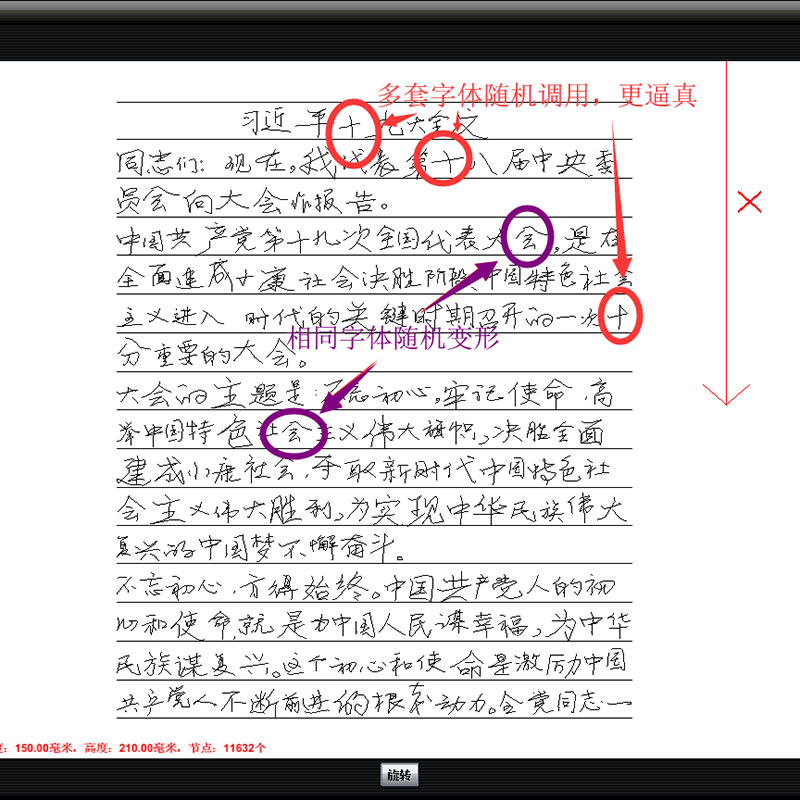 多套字体随机调用，更逼真
习近平十九大全文
同志们：现在，我代表第十八届中央委
员会向大会作报告。
中国共产党第十九次全国代表大会，是在
全面建成小康社会决胜阶段、中国特色社会
主义进入 时代的关键时期召开的一次十
相同字体随机变形
分重要的大会。
大会的主题是：不忘初心，牢记使命，高
举中国特色社会主义伟大旗帜，决胜全面
建成小康社会，夺取新时代中国特色社
会主义伟大胜利，为实现中华民族伟大
复兴的中国梦不懈奋斗。
不忘初心，方得始终。中国共产党人的初
心和使命，就是为中国人民谋幸福，为中华
民族谋复兴。这个初心和使命是激励中国
共产党人不断前进的根本动力。全党同志一
：150.00毫米，高度：210.00毫米，节点：11632个
旋转